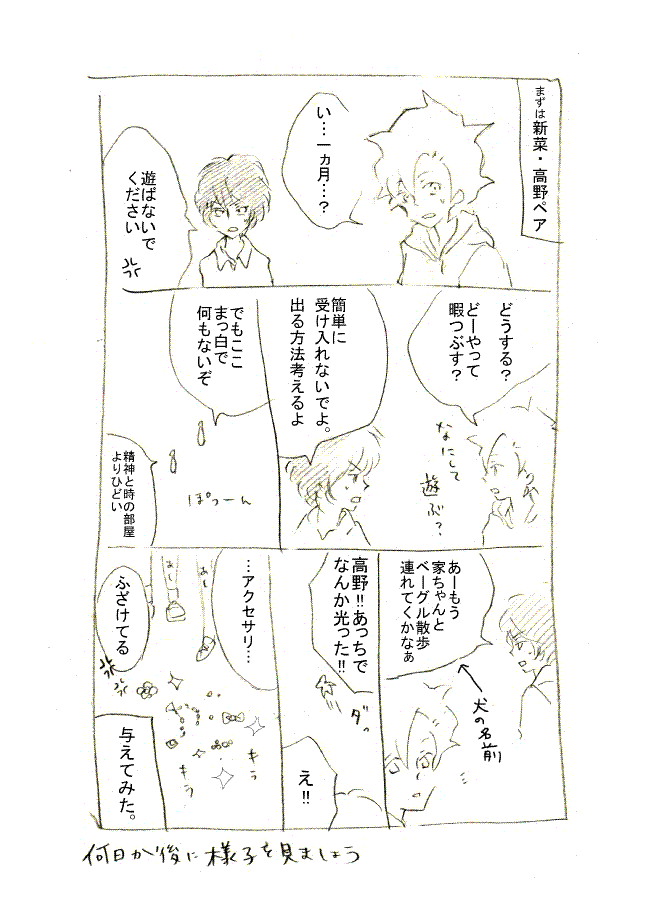 まずは
新菜・高野ペア
い…一ヵ月…？
遊ばないで
ください
どうする？
どーやって
暇つぶす？
なにして
遊ぶ？
簡単に
受け入れないでよ。
出る方法考えるよ
でもここ
まっ白で
何もないぞ
ぽつーん
精神と時の部屋
よりひどい
あーもう
家ちゃんと
ベーグル散歩
連れてくかなぁ
犬の名前
高野!!あっちで
なんか光った!!
ダッ
え!!
…アクセサリ…
あし
あし
ふざけてる
キラ
キラ
与えてみた。
何日か後に様子を見ましょう